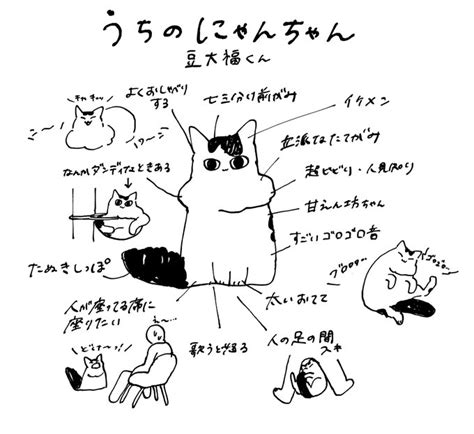 うちのにゃんちゃん
豆大福くん
よくおしゃべり
する
七三分け前がみ
イケメン
立派なたてがみ
なんかダンディなときある
超ビビリ・人見知り
甘えん坊ちゃん
すごいゴロゴロ音
たぬきしっぽ
ゴロゴロー
人が座ってる席に
座りたい
えー…
どけ〜っ!
歌うと怒る
太いおてて
人の足の間
スキ